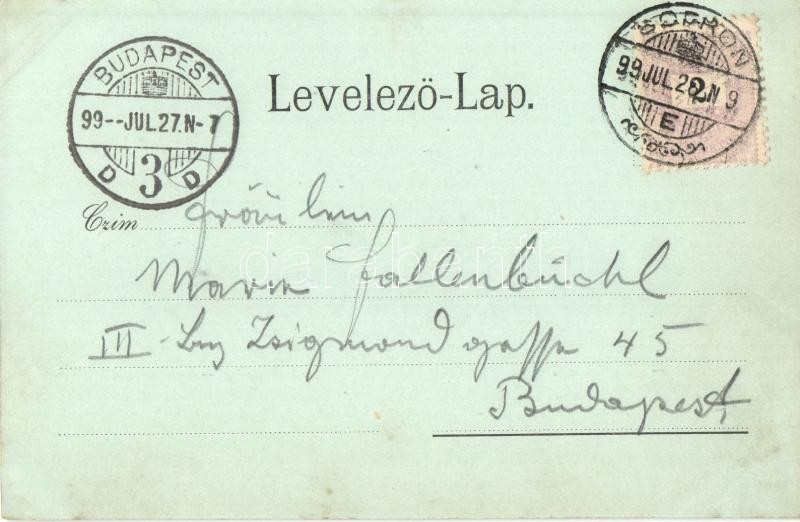 BUDAPEST
99--JUL.27.N-7
D 3 D
Levelezö-Lap.
SOPRON
99 JUL.26.N 9
E
2
Czim Fräulein
Marie Fallenbüchl
III Bez Zsigmondgasse 45
Budapest
darabanth